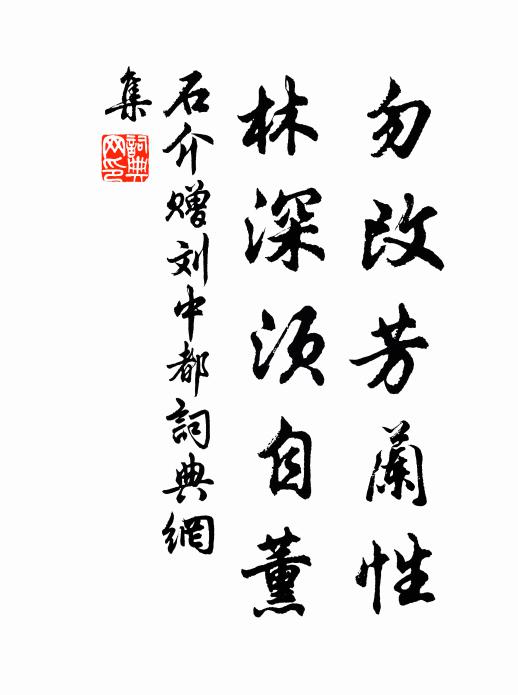 勿改芳蘭性
林深須自薰
石介赠刘中都詞典網
集
詞典網印